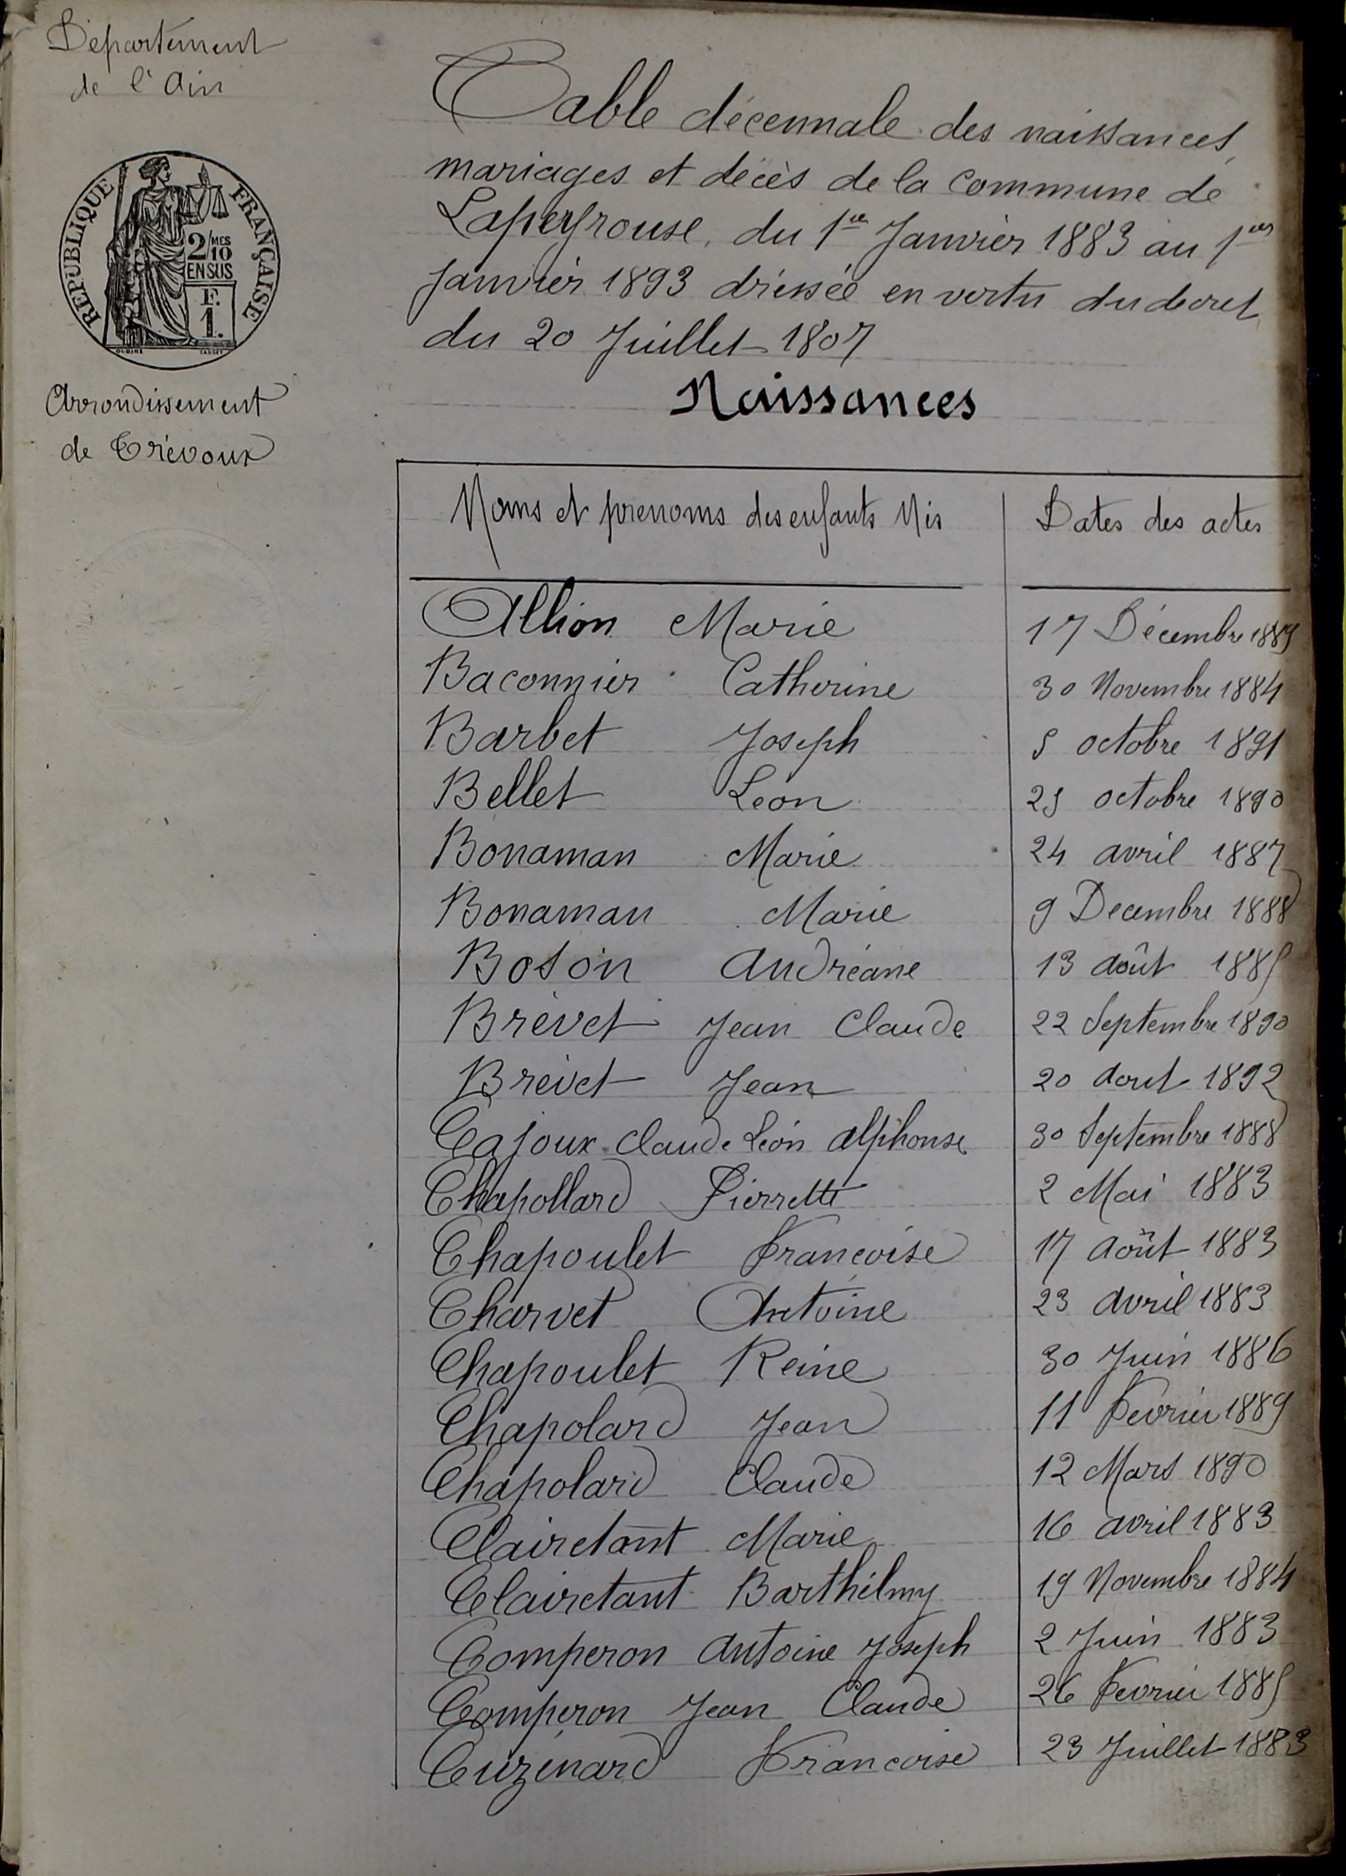 Département
de l'Ain
RÉPUBLIQUE FRANÇAISE
2/MES
10
EN SUS
F.
1.
Arrondissement
de Trévoux
Table décennale des naissances,
mariages et décès de la commune de
Lapeyrouse, du 1er Janvier 1883 au 1er
Janvier 1893 dréssée en vertu du decret
du 20 Juillet 1807
Naissances
Noms et prenoms des enfants Nés | Dates des actes
Allion Marie | 17 Décembre
Baconnier Catherine | 30 Novembre 1884
Barbet Joseph | 5 octobre 1891
Bellet Léon | 25 octobre 1890
Bonaman Marie | 24 avril 1887
Bonaman Marie | 9 Decembre 1888
Boson Andréane | 13 août 1885
Brévet Jean Claude | 22 Septembre 1890
Brévet Jean | 20 Aout 1892
Cajoux Claude Léon Alphonse | 30 Septembre 1888
Chapollard Pierrette | 2 Mai 1883
Chapoulet Francoise | 17 Août 1883
Charvet Antoine | 23 avril 1883
Chapoulet Reine | 30 Juin 1886
Chapolard Jean | 11 Fevrier 1889
Chapolard Claude | 12 Mars 1890
Clairetant Marie | 16 avril 1883
Clairetant Barthélmy | 19 Novembre 1884
Comperon Antoine Joseph | 2 Juin 1883
Comperon Jean Claude | 26 Fevrier 1885
Cuzénard Francoise | 23 Juillet 1883